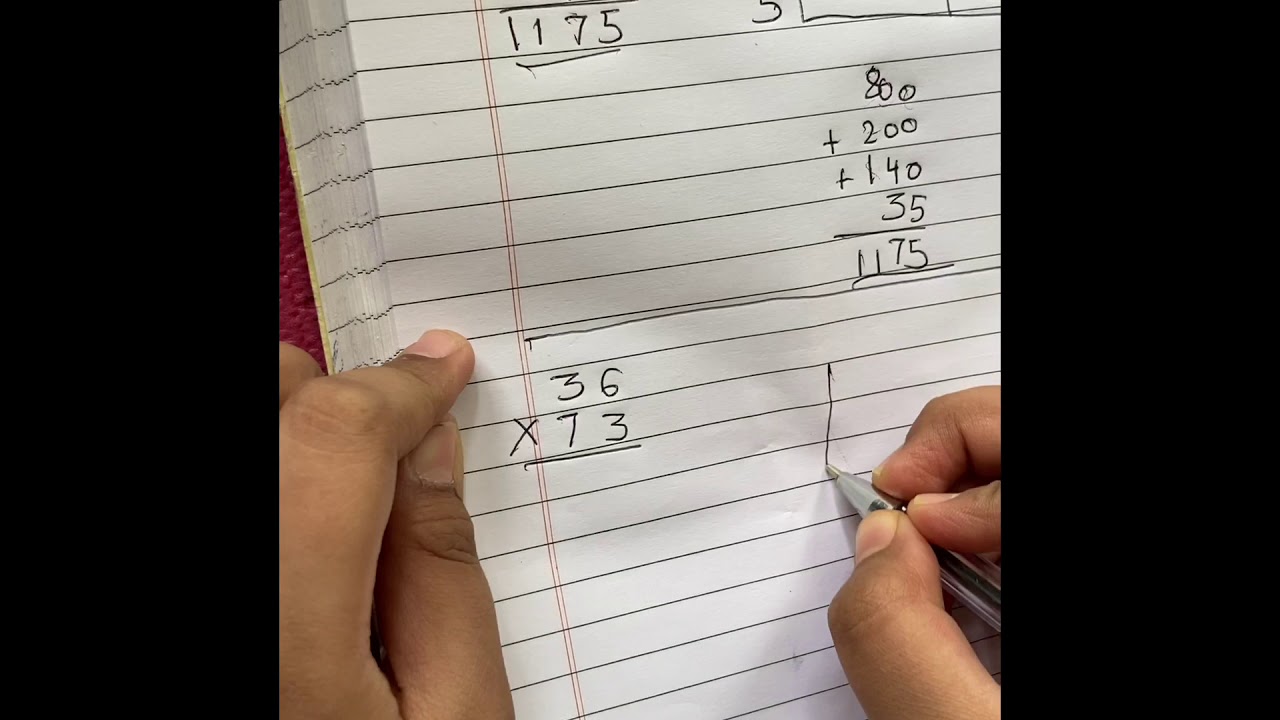 1175
5
800
+ 200
+ 140
35
1175
36
X 73